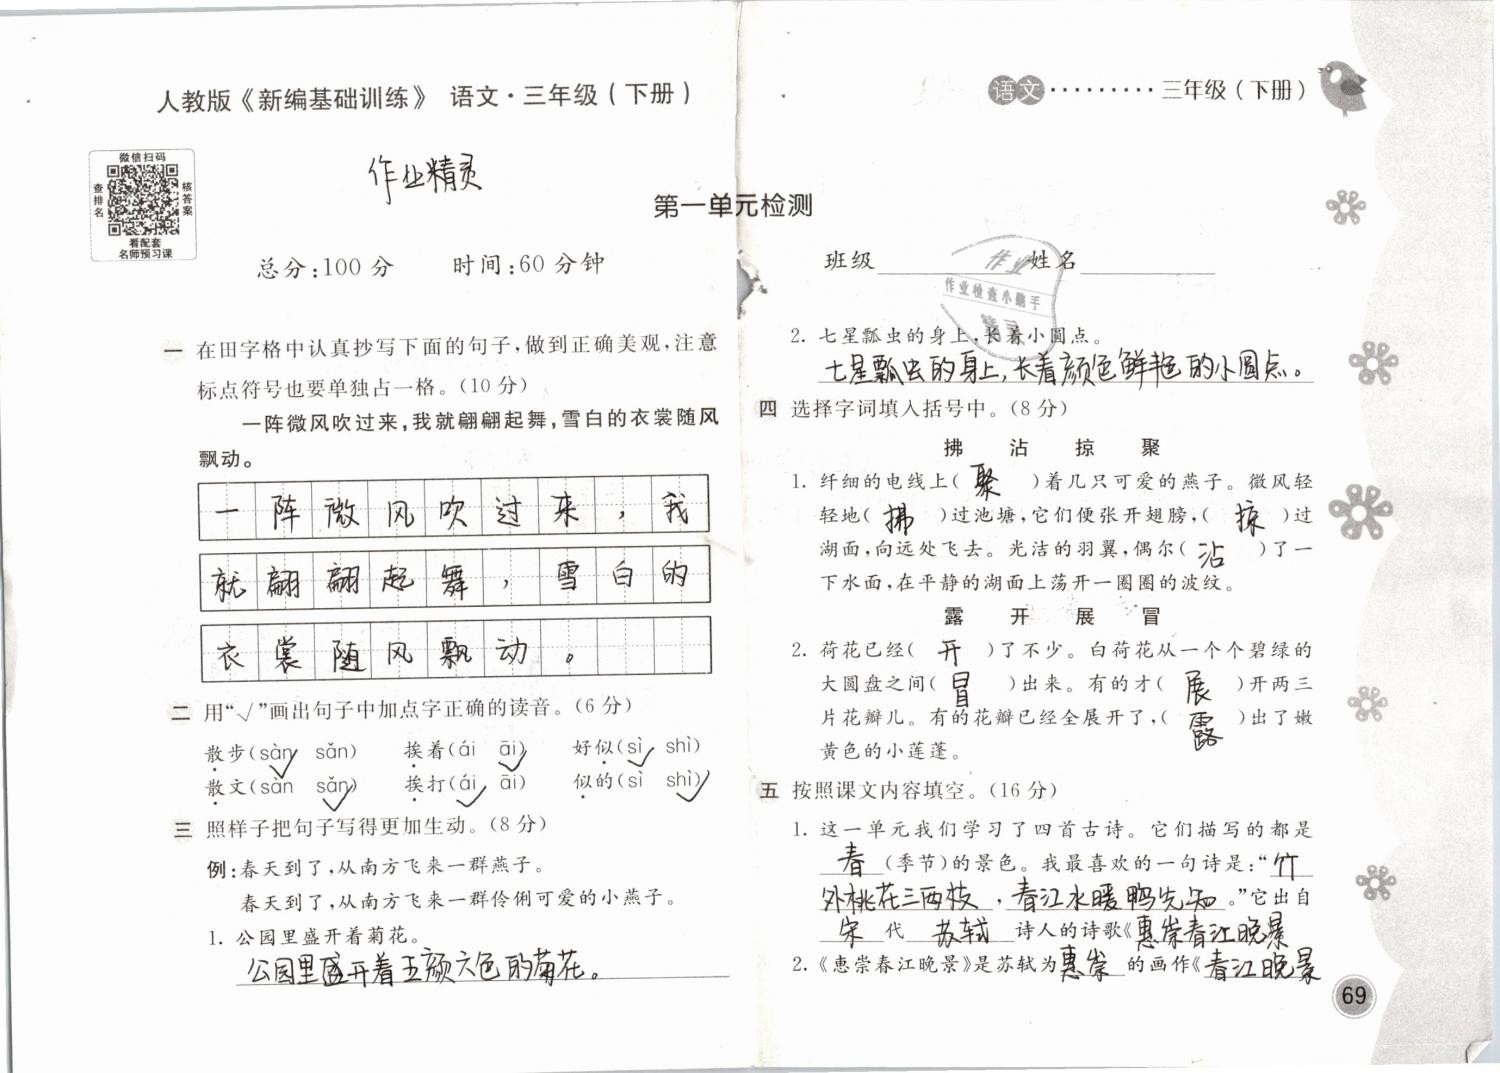 人教版《新编基础训练》 语文·三年级(下册)
语文·········三年级(下册)
微信扫码
查排名
核答案
看配套
名师预习课
作业精灵
第一单元检测
总分:100分 时间:60分钟
班级 姓名
作业
作业检查小能手
一 在田字格中认真抄写下面的句子,做到正确美观,注意
标点符号也要单独占一格。(10分)
一阵微风吹过来,我就翩翩起舞,雪白的衣裳随风
飘动。
一阵微风吹过来,我
就翩翩起舞,雪白的
衣裳随风飘动。
二 用“√”画出句子中加点字正确的读音。(6分)
散步(sàn√ sǎn) 挨着(ái āi√) 好似(sì√ shì)
散文(sàn sǎn√) 挨打(ái√ āi) 似的(sì shì√)
三 照样子把句子写得更加生动。(8分)
例:春天到了,从南方飞来一群燕子。
春天到了,从南方飞来一群伶俐可爱的小燕子。
1. 公园里盛开着菊花。
公园里盛开着五颜六色的菊花。
2. 七星瓢虫的身上,长着小圆点。
七星瓢虫的身上,长着颜色鲜艳的小圆点。
四 选择字词填入括号中。(8分)
拂 沾 掠 聚
1. 纤细的电线上(聚)着几只可爱的燕子。微风轻
轻地(拂)过池塘,它们便张开翅膀,(掠)过
湖面,向远处飞去。光洁的羽翼,偶尔(沾)了一
下水面,在平静的湖面上荡开一圈圈的波纹。
露 开 展 冒
2. 荷花已经(开)了不少。白荷花从一个个碧绿的
大圆盘之间(冒)出来。有的才(展)开两三
片花瓣儿。有的花瓣已经全展开了,(露)出了嫩
黄色的小莲蓬。
五 按照课文内容填空。(16分)
1. 这一单元我们学习了四首古诗。它们描写的都是
春(季节)的景色。我最喜欢的一句诗是:“竹
外桃花三两枝,春江水暖鸭先知。”它出自
宋代苏轼诗人的诗歌《惠崇春江晚景
2.《惠崇春江晚景》是苏轼为惠崇的画作《春江晚景
69